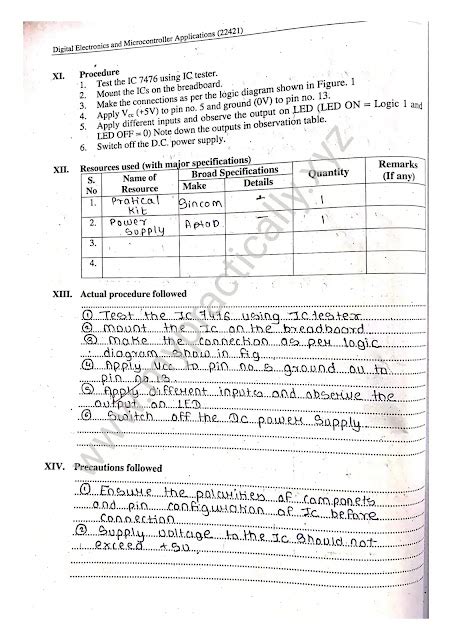 Digital Electronics and Microcontroller Applications (22421)
XI. Procedure
1. Test the IC 7476 using IC tester.
2. Mount the ICs on the breadboard.
3. Make the connections as per the logic diagram shown in Figure. 1
4. Apply Vcc (+5V) to pin no. 5 and ground (0V) to pin no. 13.
5. Apply different inputs and observe the output on LED (LED ON = Logic 1 and
LED OFF = 0) Note down the outputs in observation table.
6. Switch off the D.C. power supply.
XII. Resources used (with major specifications)
S. No Name of Resource Broad Specifications Make Details Quantity Remarks (If any)
1. Pratical Kit Sincom — 1
2. Power Supply — 1
3.
4.
XIII. Actual procedure followed
① Test the IC 7476 using IC tester
② Mount the Ic on the breadboard
③ Make the connection as per logic
diagram show in fig
④ Apply Vcc to pin no 5 ground ov to
pin no 13
⑤ Apply different inputs and observe the
output on LED
⑥ Switch off the DC power supply
XIV. Precautions followed
① Ensure the polarities of componets
and pin configuration of IC before
connection
② Supply voltage to the Ic should not
exceed +5v